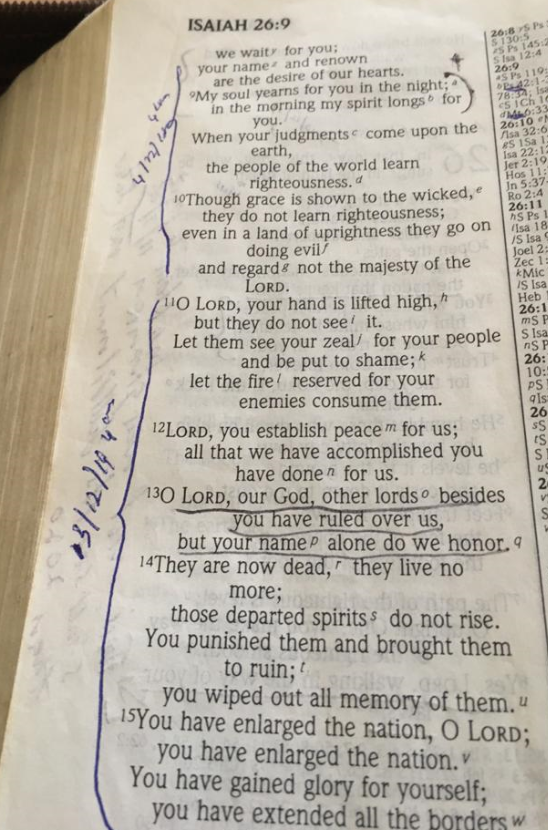 ISAIAH 26:9
we wait y for you;
your name z and renown
are the desire of our hearts.
9My soul yearns for you in the night; a
in the morning my spirit longs b for
you.
When your judgments c come upon the
earth,
the people of the world learn
righteousness. d
10Though grace is shown to the wicked, e
they do not learn righteousness;
even in a land of uprightness they go on
doing evil f
and regard g not the majesty of the
LORD.
11O LORD, your hand is lifted high, h
but they do not see i it.
Let them see your zeal j for your people
and be put to shame; k
let the fire l reserved for your
enemies consume them.
12LORD, you establish peace m for us;
all that we have accomplished you
have done n for us.
13O LORD, our God, other lords o besides
you have ruled over us,
but your name p alone do we honor. q
14They are now dead, r they live no
more;
those departed spirits s do not rise.
You punished them and brought them
to ruin; t
you wiped out all memory of them. u
15You have enlarged the nation, O LORD;
you have enlarged the nation. v
You have gained glory for yourself;
you have extended all the borders w
26:8
S 130:5
S Isa 12:4
26:9
S Ps 119:
78:34; Isa
26:10
Isa 22:12
Jer 2:19
Hos 11:
Jn 5:37
Ro 2:4
26:11
Joel 2:
Zec 1:
kMic
Heb
3/12/19 4am